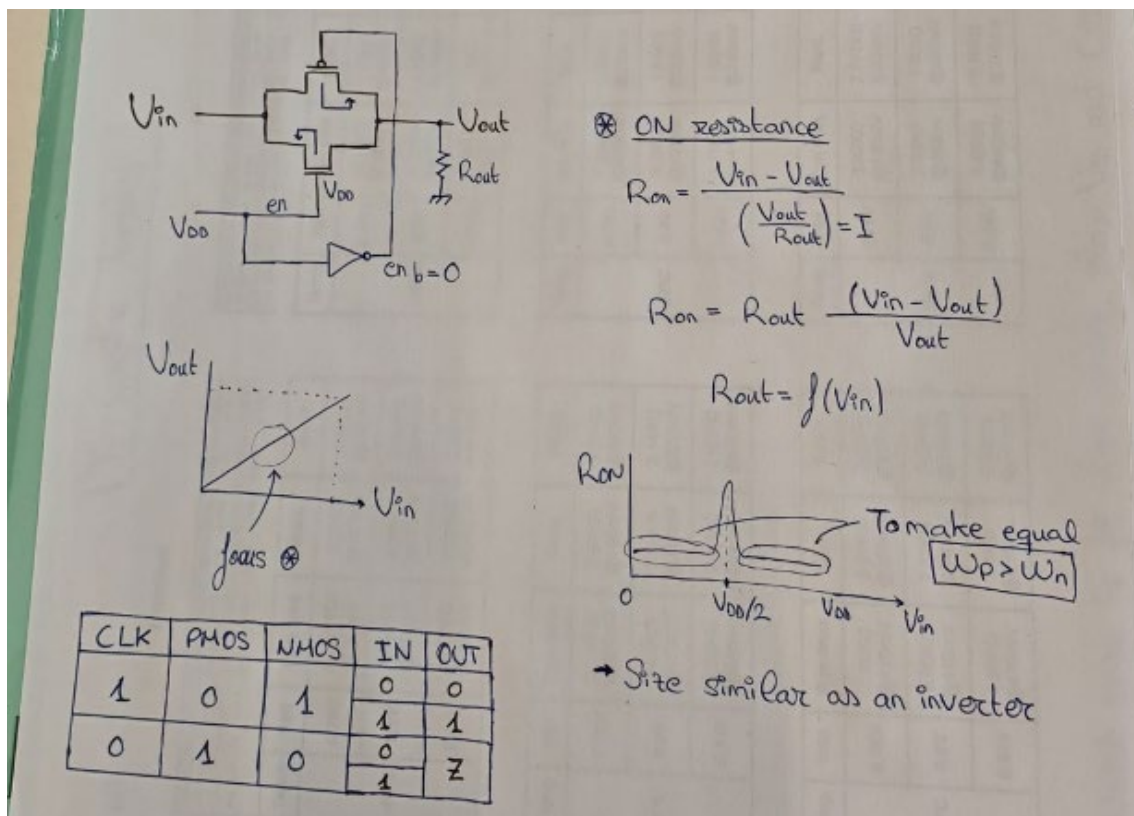 Vin
Vout
Rout
VDD
en
VDD
en b=0
Vout
Vin
focus ⊛
CLK PMOS NMOS IN OUT
1 0 1 0 0
1 1
0 1 0 0 Z
1
⊛ ON resistance
Ron = Vin - Vout / (Vout / Rout) = I
Ron = Rout (Vin - Vout) / Vout
Rout = f(Vin)
RON
To make equal
Wp > Wn
0 VDD/2 VDD Vin
→ Size similar as an inverter